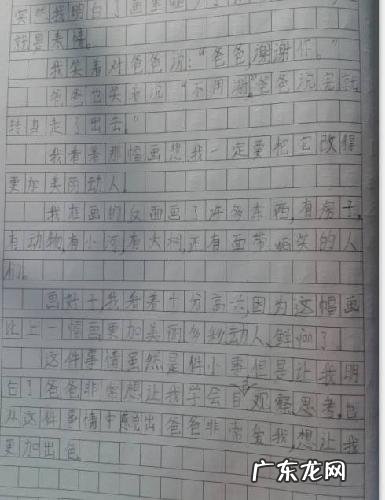 突然我明白了
就是亲情。
我笑着对爸爸说：“爸爸，谢谢你。”
爸爸也笑着说：“不用谢”爸爸说完就
转身走了出去。
我看着那幅画想我一定要把它改得
更加美丽动人。
我在画的仅面画了许多东西，有房子，
有动物，有小河，有大树，还有面带微笑的人
们。
画好了，我看着十分高兴因为这幅画
比上一幅画更加美丽动人、鲜
这件事情虽然是件小事但是让我明
白了爸爸非常想让我学会自观察思考。也
从这件事情中感觉出爸爸非常爱我想让我
更加出色
广东龙网